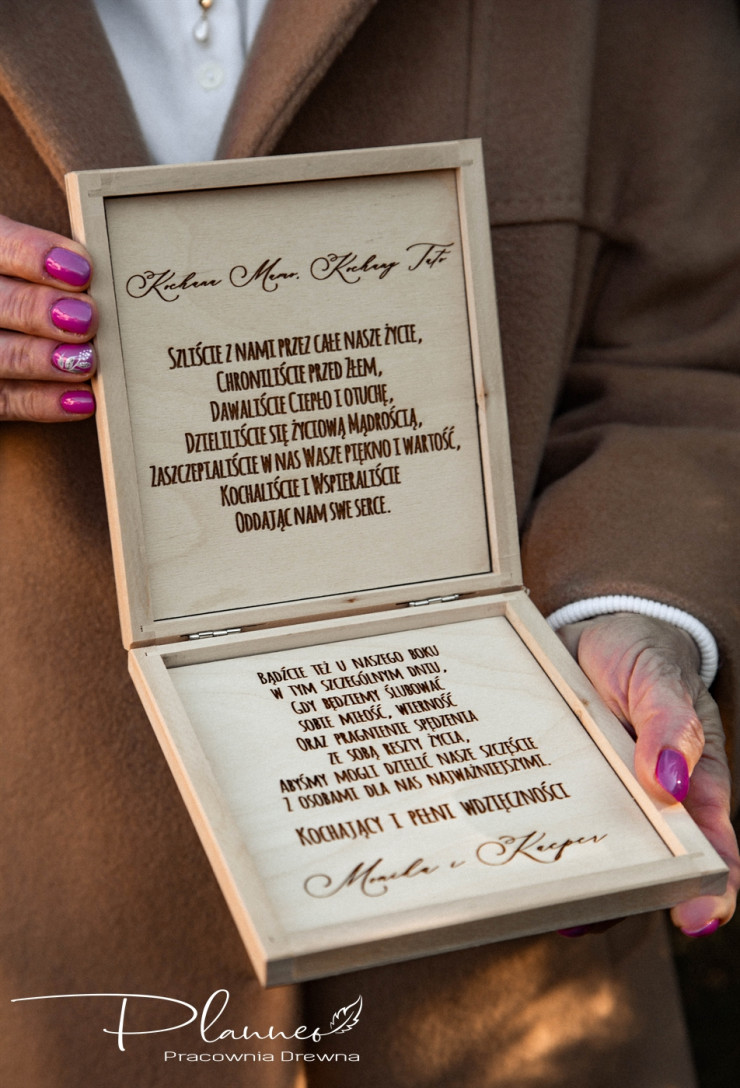 Kochana Mamo, Kochany Tato
Szliście z nami przez całe nasze życie,
Chroniliście przed Złem,
Dawaliście Ciepło i otuchę,
Dzieliliście się życiową Mądrością,
Zaszczepialiście w nas Wasze piękno i wartość,
Kochaliście i Wspieraliście
Oddając nam swe serce.
Bądźcie też u naszego boku
w tym szczególnym dniu,
Gdy będziemy ślubować
sobie miłość, wierność
Oraz pragnienie spędzenia
ze sobą reszty życia,
Abyśmy mogli dzielić nasze szczęście
z osobami dla nas najważniejszymi.
Kochający i pełni wdzięczności
Monika i Kacper
Planneo
Pracownia Drewna